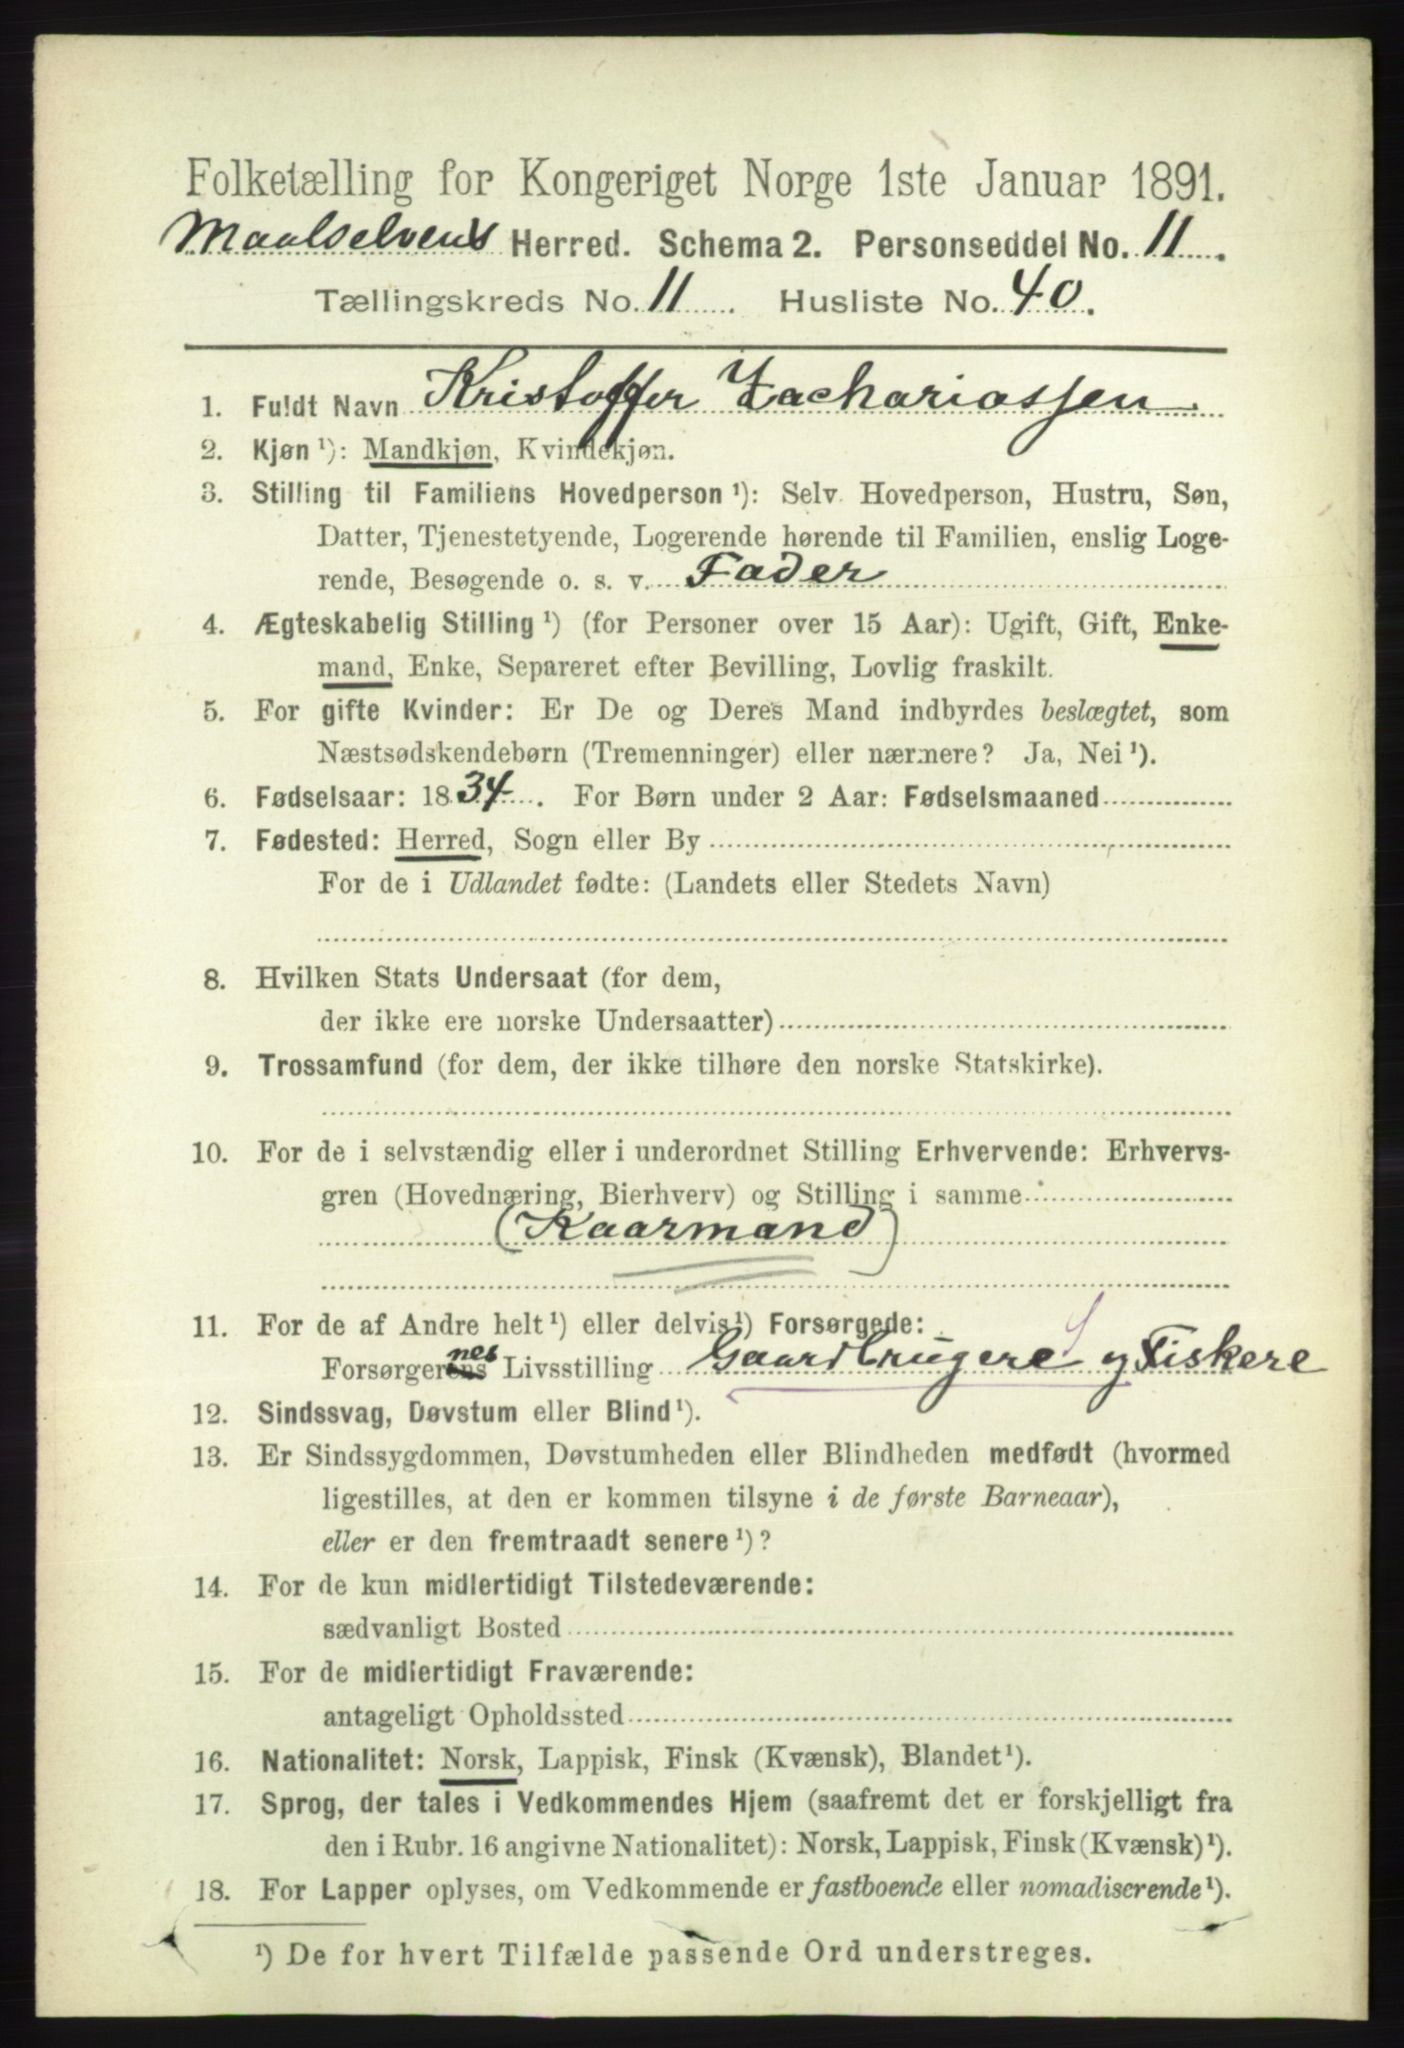 Folketælling for Kongeriget Norge 1ste Januar 1891.
Maalselvens Herred. Schema 2. Personseddel No. 11.
Tællingskreds No. 11. Husliste No. 40.
1. Fuldt Navn Kristoffer Zachariassen
2. Kjøn ¹): Mandkjøn, Kvindekjøn.
3. Stilling til Familiens Hovedperson ¹): Selv Hovedperson, Hustru, Søn,
Datter, Tjenestetyende, Logerende hørende til Familien, enslig Loge-
rende, Besøgende o. s. v. Fader
4. Ægteskabelig Stilling ¹) (for Personer over 15 Aar): Ugift, Gift, Enke-
mand, Enke, Separeret efter Bevilling, Lovlig fraskilt.
5. For gifte Kvinder: Er De og Deres Mand indbyrdes beslægtet, som
Næstsødskendebørn (Tremenninger) eller nærmere? Ja, Nei ¹).
6. Fødselsaar: 1834. For Børn under 2 Aar: Fødselsmaaned
7. Fødested: Herred, Sogn eller By
For de i Udlandet fødte: (Landets eller Stedets Navn)
8. Hvilken Stats Undersaat (for dem,
der ikke ere norske Undersaatter)
9. Trossamfund (for dem, der ikke tilhøre den norske Statskirke).
10. For de i selvstændig eller i underordnet Stilling Erhvervende: Erhvervs-
gren (Hovednæring, Bierhverv) og Stilling i samme
(Kaarmand)
11. For de af Andre helt ¹) eller delvis ¹) Forsørgede:
Forsørgerenes Livsstilling Gaardbrugere og Fiskere
12. Sindssvag, Døvstum eller Blind ¹).
13. Er Sindssygdommen, Døvstumheden eller Blindheden medfødt (hvormed
ligestilles, at den er kommen tilsyne i de første Barneaar),
eller er den fremtraadt senere ¹)?
14. For de kun midlertidigt Tilstedeværende:
sædvanligt Bosted
15. For de midlertidigt Fraværende:
antageligt Opholdssted
16. Nationalitet: Norsk, Lappisk, Finsk (Kvænsk), Blandet ¹).
17. Sprog, der tales i Vedkommendes Hjem (saafremt det er forskjelligt fra
den i Rubr. 16 angivne Nationalitet): Norsk, Lappisk, Finsk (Kvænsk) ¹).
18. For Lapper oplyses, om Vedkommende er fastboende eller nomadiserende ¹).
¹) De for hvert Tilfælde passende Ord understreges.